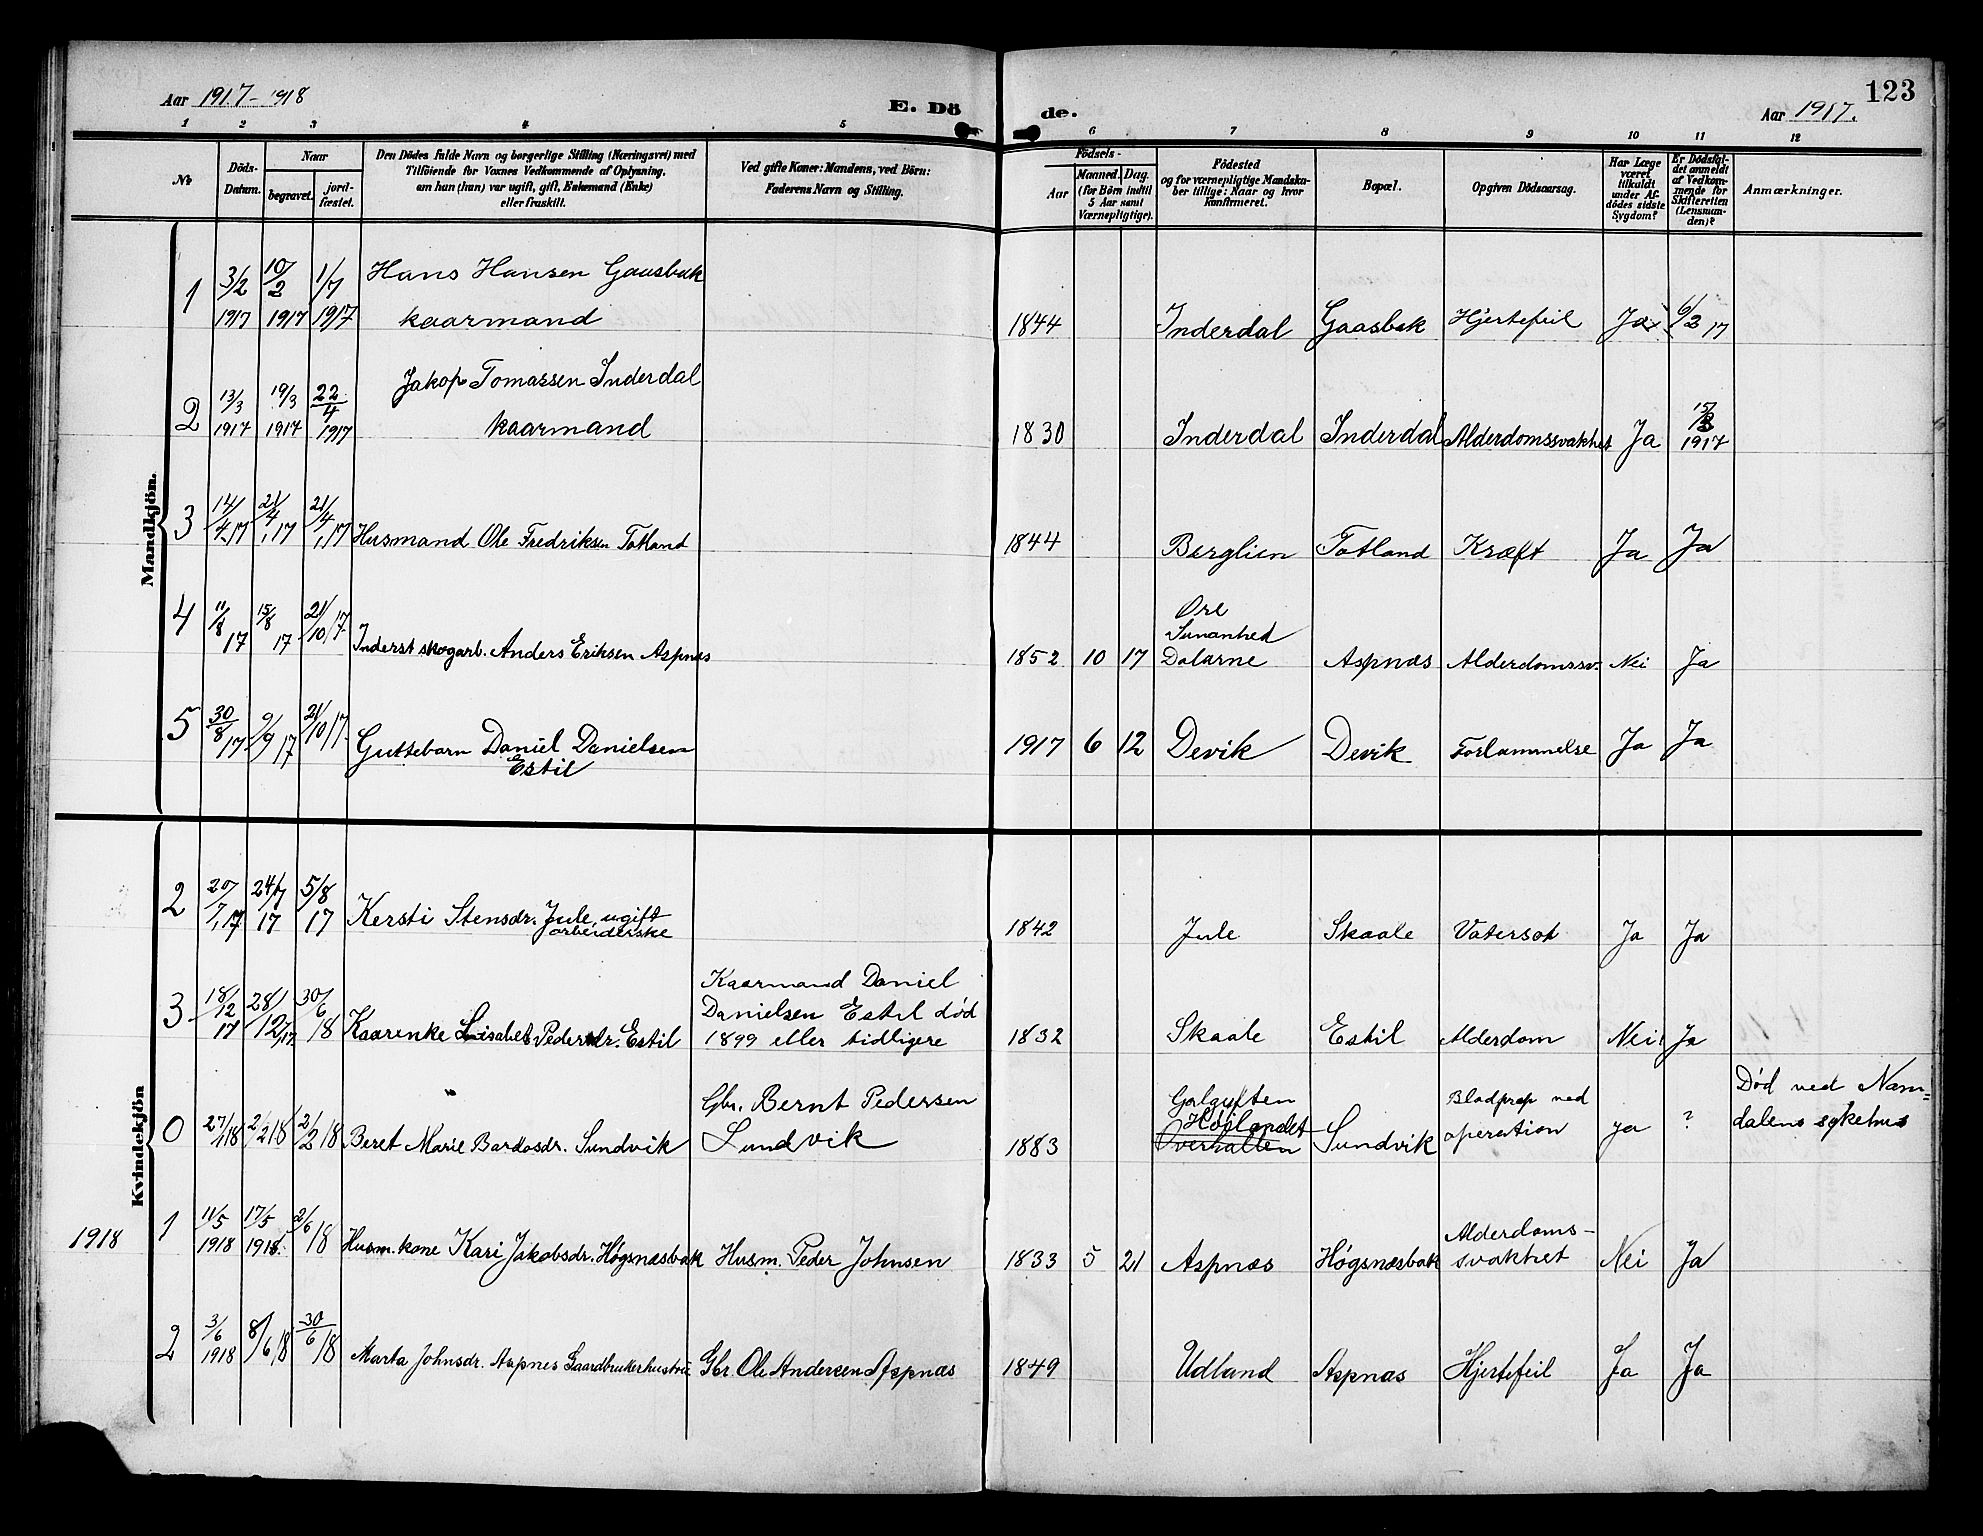 Aar 1917-1918
E. Dö
de.
Aar 1917.
123
1 2 3 4 5 6 7 8 9 10 11 12
No
Döds-
Datum.
Naar
begravet.
jord-
fæstet.
Den Dödes fulde Navn og borgerlige Stilling (Næringsvei) med
Tilföiende for Voxnes Vedkommende af Oplysning,
om han (hun) var ugift, gift, Enkemand (Enke)
eller fraskilt.
Ved gifte Koner: Mandens, ved Börn:
Faderens Navn og Stilling.
Födsels-
Aar
Maaned. Dag.
(for Börn indtil
5 Aar samt
Værnepligtige).
Födested
og for værnepligtige Mandska-
ber tillige: Naar og hvor
konfirmeret.
Bopæl.
Opgiven Dödsaarsag.
Har Læge
været
tilkaldt
under Af-
dödes sidste
Sygdom?
Er Dödsfal-
det anmeldt
af Vedkom-
mende for
Skifteretten
(Lensman-
den)?
Anmærkninger.
Mandkjön.
1 3/2 1917 10/2 1917 1/7 1917 Hans Hansen Gaasbak
kaarmand 1844 Inderdal Gaasbak Hjertefeil Ja 6/2 17
2 13/3 1917 19/3 1917 22/4 1917 Jakop Tomassen Inderdal
kaarmand 1830 Inderdal Inderdal Alderdomssvakhet Ja 15/3 1917
3 14/4 17 21/4 17 21/4 17 Husmand Ole Fredriksen Totland 1844 Berglien Totland Kræft Ja Ja
4 11/8 17 15/8 17 21/10 17 Inderst skogarb. Anders Eriksen Aspnæs 1852 10 17 Ore
Dalarne Aspnæs Alderdomssv. Nei Ja
5 30/8 17 9/9 17 21/10 17 Guttebarn Daniel Danielsen
Estil 1917 6 12 Devik Devik Forlammelse Ja Ja
Kvindekjön
2 20/7 17 24/7 17 5/8 17 Kersti Stensdr. Jule, ugift
arbeiderske 1842 Jule Skaale Vatersot Ja Ja
3 18/12 17 28/12 17 30/6 18 Kaarenke Lisabet Pedersdr. Estil
Kaarmand Daniel
Danielsen Estil død
1899 eller tidligere 1832 Skaale Estil Alderdom Nei Ja
0 27/1 18 2/2 18 2/2 18 Beret Marie Bardosdr. Sundvik
Gbr. Bernt Pedersen
Sundvik 1883 Galguften
Høilandet
Overhallen Sundvik Blodprop ved
operation ja ? Død ved Nam-
dalens sykehus
1918
1 11/5 1918 17/5 1918 2/6 18 Husm. kone Kari Jakobsdr. Høgsnæsbak Husm. Peder Johnsen 1833 5 21 Aspnæs Høgsnæsbak Alderdoms-
svakhet Nei Ja
2 3/6 1918 8/6 18 30/6 18 Marta Johnsdr. Aspnes Gaardbrukerhustru Gbr. Ole Andersen Aspnæs 1849 Udland Aspnæs Hjertefeil Ja Ja